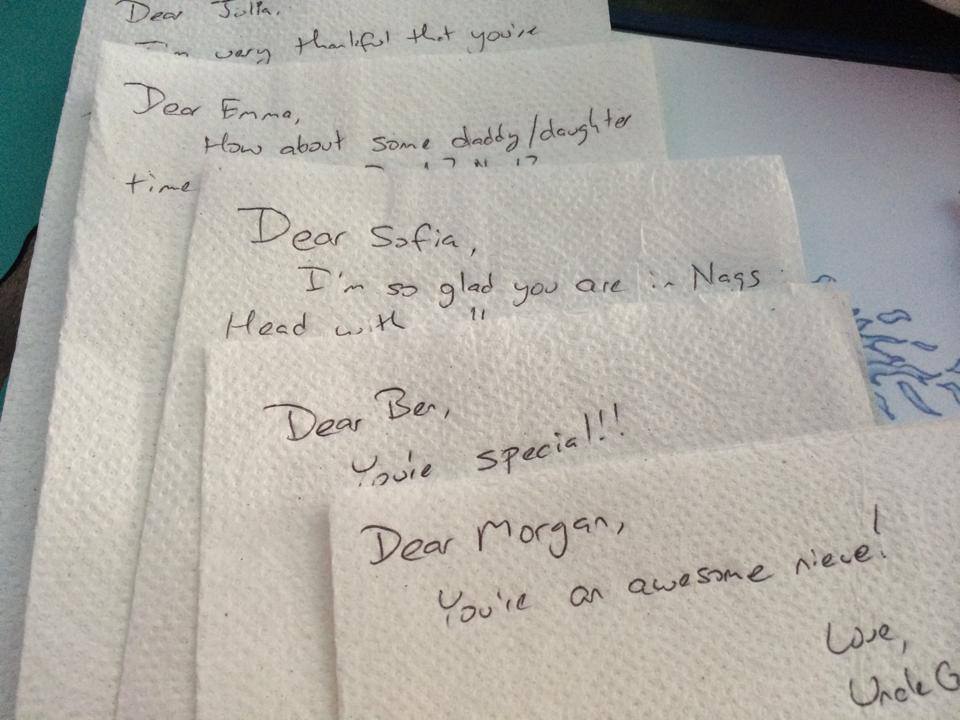 Dear Julia,
I'm very thankful that you're
Dear Emma,
How about some daddy/daughter
time
Dear Sofia,
I'm so glad you are in Nags
Head with
Dear Ben,
You're special!!!
Dear Morgan,
You're an awesome niece!
Love,
Uncle G